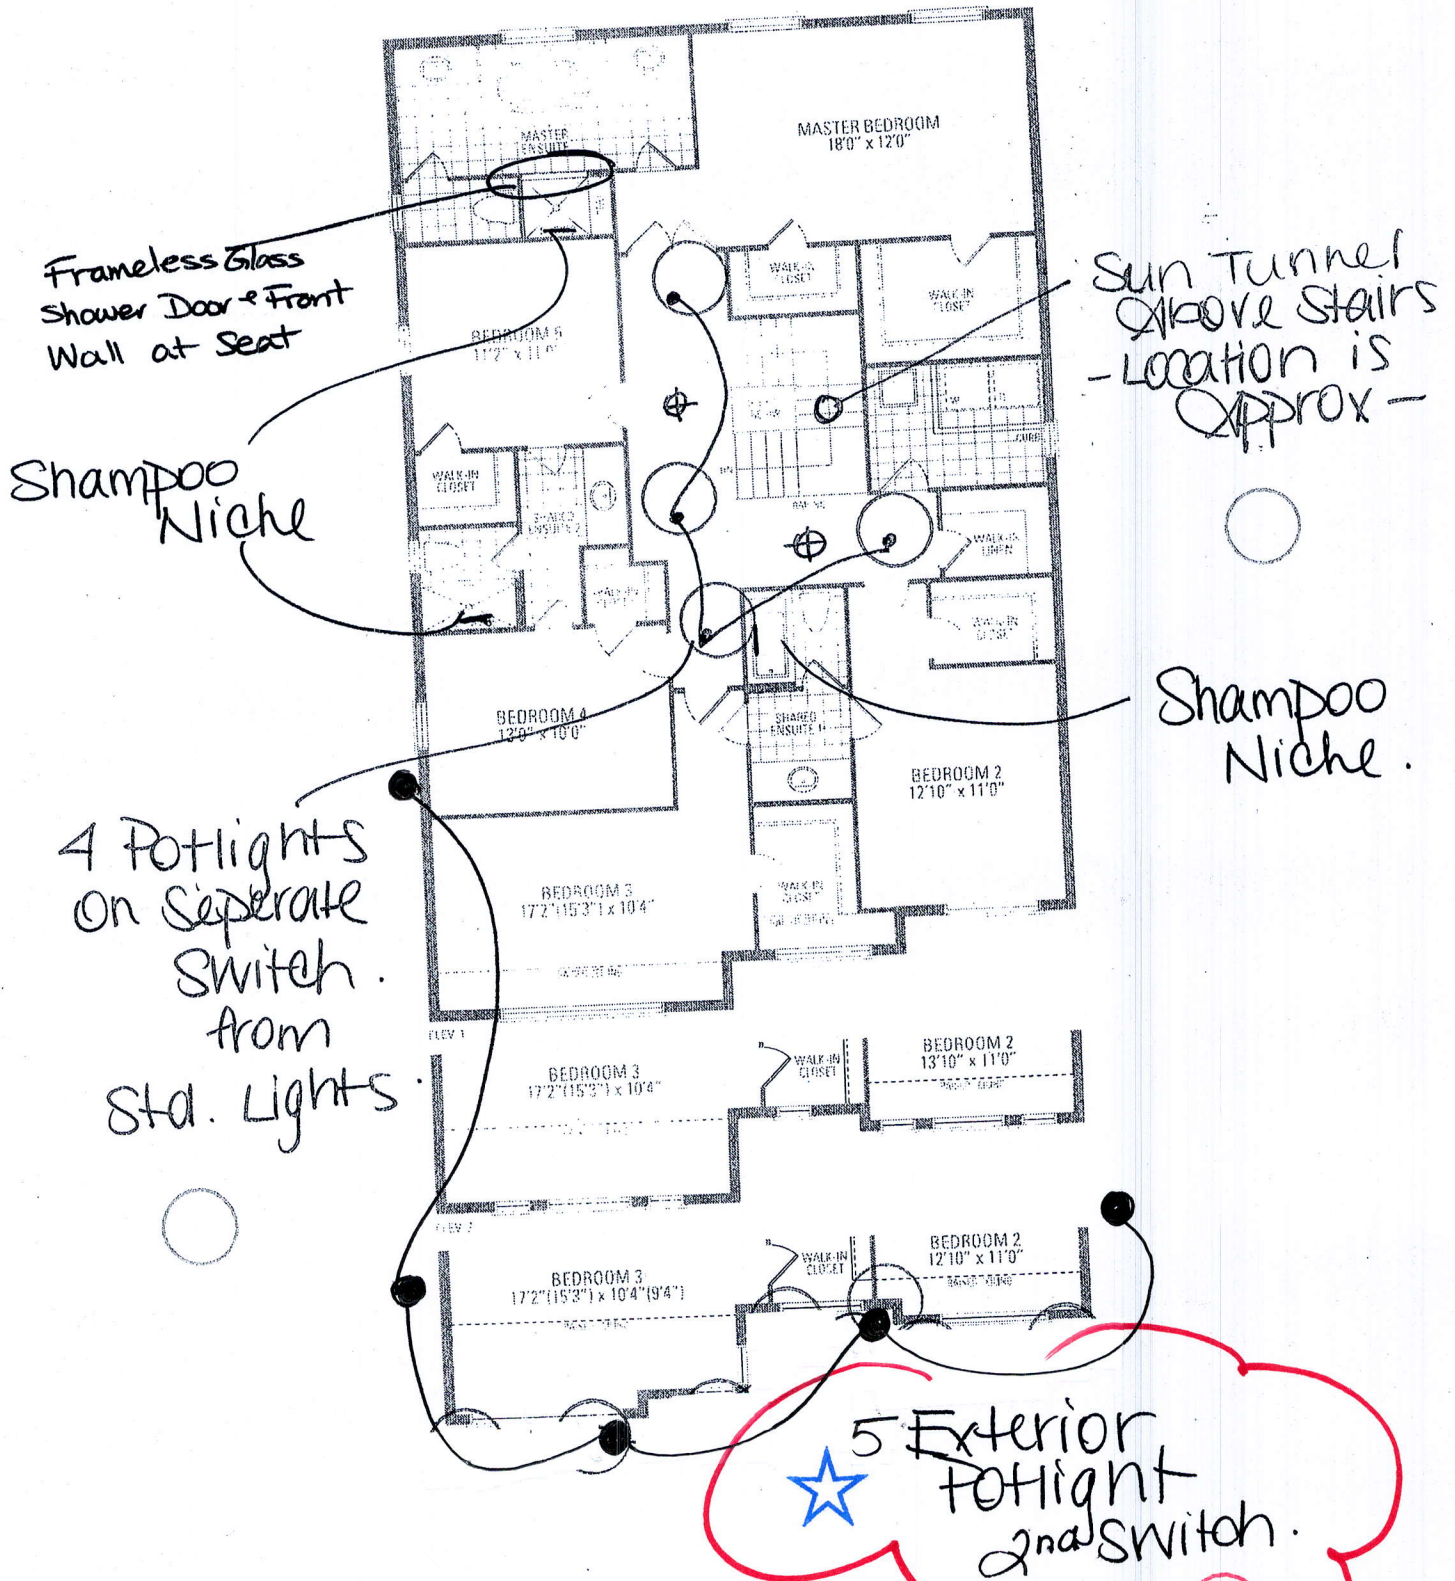 MASTER
ENSUITE
MASTER BEDROOM
18'0" x 12'0"
Frameless Glass
Shower Door & Front
Wall at Seat
WALK-IN
CLOSET
WALK-IN
CLOSET
Sun Tunnel
Above Stairs
- Location is
Approx -
BEDROOM 5
11'2" x 11'0"
Shampoo
Niche
WALK-IN
CLOSET
SHARED
ENSUITE 2
DN
WALK-IN
LINEN
WALK-IN
WALK-IN
CLOSET
Shampoo
Niche.
BEDROOM 4
13'0" x 10'0"
SHARED
ENSUITE 1
BEDROOM 2
12'10" x 11'0"
4 Potlights
On Seperate
Switch.
from
Std. Lights.
BEDROOM 3
17'2"(15'3") x 10'4"
WALK-IN
CLOSET
ELEV 1
BEDROOM 3
17'2"(15'3") x 10'4"
WALK-IN
CLOSET
BEDROOM 2
13'10" x 11'0"
ELEV 2
BEDROOM 3
17'2"(15'3") x 10'4"(9'4")
WALK-IN
CLOSET
BEDROOM 2
12'10" x 11'0"
5 Exterior
Potlight
2nd Switch.